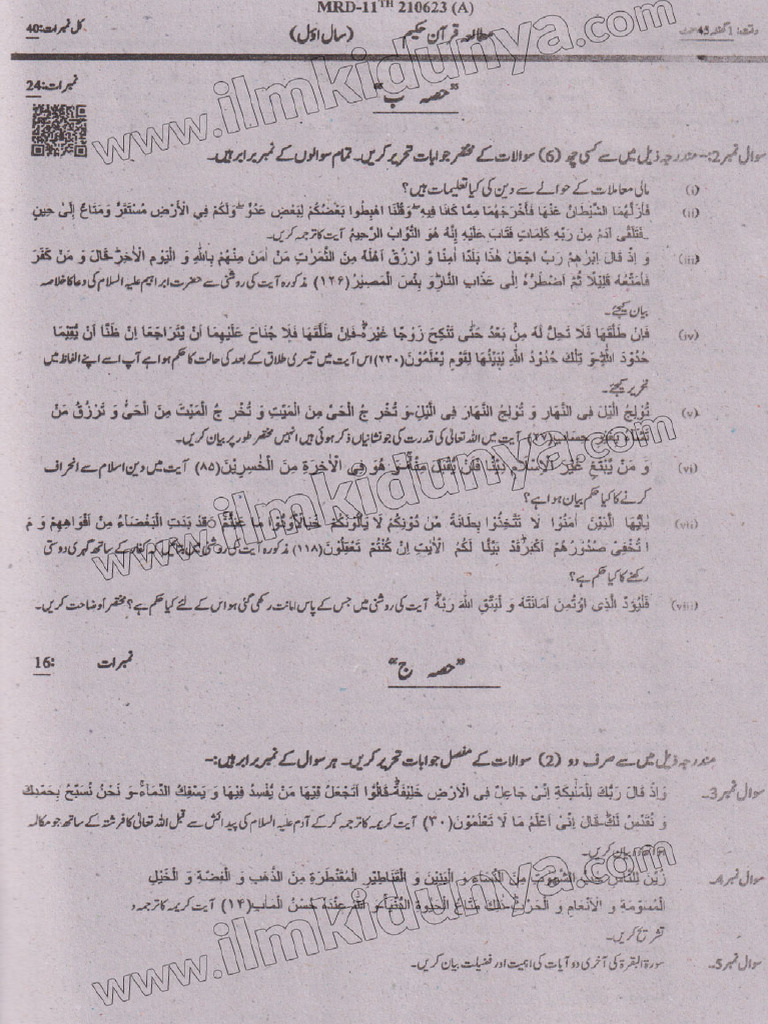 MRD-11TH 210623 (A)
وقت: 1 گھنٹہ 45 منٹ مطالعہ قرآن حکیم (سال اوّل) کل نمبرات: 40
"حصہ ب" نمبرات: 24
سوال نمبر 2:- مندرجہ ذیل میں سے کسی چھ (6) سوالات کے مختصر جوابات تحریر کریں۔ تمام سوالوں کے نمبر برابر ہیں۔
(i) مالی معاملات کے حوالے سے دین کی کیا تعلیمات ہیں؟
(ii) فَأَزَلَّهُمَا الشَّيْطَانُ عَنْهَا فَأَخْرَجَهُمَا مِمَّا كَانَا فِيهِ ۖ وَقُلْنَا اهْبِطُوا بَعْضُكُمْ لِبَعْضٍ عَدُوٌّ ۖ وَلَكُمْ فِي الْأَرْضِ مُسْتَقَرٌّ وَمَتَاعٌ إِلَىٰ حِينٍ
فَتَلَقَّى آدَمُ مِنْ رَبِّهِ كَلِمَاتٍ فَتَابَ عَلَيْهِ إِنَّهُ هُوَ التَّوَّابُ الرَّحِيمُ آیت کا ترجمہ کریں۔
(iii) وَ اِذْ قَالَ اِبْرٰهٖمُ رَبِّ اجْعَلْ هٰذَا بَلَدًا اٰمِنًا وَّ ارْزُقْ اَهْلَهٗ مِنَ الثَّمَرٰتِ مَنْ اٰمَنَ مِنْهُمْ بِاللّٰهِ وَ الْیَوْمِ الْاٰخِرِ قَالَ وَ مَنْ كَفَرَ
فَاُمَتِّعُهٗ قَلِیْلًا ثُمَّ اَضْطَرُّهٗۤ اِلٰى عَذَابِ النَّارِ وَ بِئْسَ الْمَصِیْرُ (۱۲۶) مذکورہ آیت کی روشنی سے حضرت ابراہیم علیہ السلام کی دعا کا خلاصہ
بیان کیجئے۔
(iv) فَاِنْ طَلَّقَهَا فَلَا تَحِلُّ لَهٗ مِنْۢ بَعْدُ حَتّٰى تَنْكِحَ زَوْجًا غَیْرَهٗ فَاِنْ طَلَّقَهَا فَلَا جُنَاحَ عَلَیْهِمَاۤ اَنْ یَّتَرَاجَعَاۤ اِنْ ظَنَّاۤ اَنْ یُّقِیْمَا
حُدُوْدَ اللّٰهِ وَ تِلْكَ حُدُوْدُ اللّٰهِ یُبَیِّنُهَا لِقَوْمٍ یَّعْلَمُوْنَ (۲۳۰) اس آیت میں تیسری طلاق کے بعد کی حالت کا حکم ہوا ہے آپ اسے اپنے الفاظ میں
تحریر کیجئے۔
(v) تُوْلِجُ الَّیْلَ فِی النَّهَارِ وَ تُوْلِجُ النَّهَارَ فِی الَّیْلِ وَ تُخْرِ جُ الْحَیَّ مِنَ الْمَیِّتِ وَ تُخْرِ جُ الْمَیِّتَ مِنَ الْحَیِّ وَ تَرْزُقُ مَنْ
تَشَآءُ بِغَیْرِ حِسَابٍ (۲۷) آیت میں اللہ تعالیٰ کی قدرت کی جو نشانیاں ذکر ہوئی ہیں انہیں مختصر طور پر بیان کریں۔
(vi) وَ مَنْ یَّبْتَغِ غَیْرَ الْاِسْلَامِ دِیْنًا فَلَنْ یُّقْبَلَ مِنْهُ وَ هُوَ فِی الْاٰخِرَةِ مِنَ الْخٰسِرِیْنَ (۸۵) آیت میں دین اسلام سے انحراف
کرنے کا کیا حکم بیان ہوا ہے؟
(vii) یٰۤاَیُّهَا الَّذِیْنَ اٰمَنُوْا لَا تَتَّخِذُوْا بِطَانَةً مِّنْ دُوْنِكُمْ لَا یَاْلُوْنَكُمْ خَبَالًا وَدُّوْا مَا عَنِتُّمْ قَدْ بَدَتِ الْبَغْضَآءُ مِنْ اَفْوَاهِهِمْ وَ مَ
ا تُخْفِیْ صُدُوْرُهُمْ اَكْبَرُ قَدْ بَیَّنَّا لَكُمُ الْاٰیٰتِ اِنْ كُنْتُمْ تَعْقِلُوْنَ (۱۱۸) مذکورہ آیت کی روشنی میں بتائیں کہ کفار کے ساتھ گہری دوستی
رکھنے کا کیا حکم ہے؟
(viii) فَلْیُؤَدِّ الَّذِی اؤْتُمِنَ اَمَانَتَهٗ وَ لْیَتَّقِ اللّٰهَ رَبَّهٗ آیت کی روشنی میں جس کے پاس امانت رکھی گئی ہو اس کے لئے کیا حکم ہے؟ مختصراً وضاحت کریں۔
"حصہ ج" نمبرات :16
مندرجہ ذیل میں سے صرف دو (2) سوالات کے مفصل جوابات تحریر کریں۔ ہر سوال کے نمبر برابر ہیں:-
سوال نمبر 3۔ وَ اِذْ قَالَ رَبُّكَ لِلْمَلٰٓىٕكَةِ اِنِّیْ جَاعِلٌ فِی الْاَرْضِ خَلِیْفَةً قَالُوْۤا اَتَجْعَلُ فِیْهَا مَنْ یُّفْسِدُ فِیْهَا وَ یَسْفِكُ الدِّمَآءَ وَ نَحْنُ نُسَبِّحُ بِحَمْدِكَ
وَ نُقَدِّسُ لَكَ قَالَ اِنِّیْۤ اَعْلَمُ مَا لَا تَعْلَمُوْنَ (۳۰) آیت کریمہ کا ترجمہ کر کے آدم علیہ السلام کی پیدائش سے قبل اللہ تعالیٰ کا فرشتہ کے ساتھ جو مکالمہ
بیان کریں۔
سوال نمبر 4۔ زُیِّنَ لِلنَّاسِ حُبُّ الشَّهَوٰتِ مِنَ النِّسَآءِ وَ الْبَنِیْنَ وَ الْقَنَاطِیْرِ الْمُقَنْطَرَةِ مِنَ الذَّهَبِ وَ الْفِضَّةِ وَ الْخَیْلِ
الْمُسَوَّمَةِ وَ الْاَنْعَامِ وَ الْحَرْثِ ذٰلِكَ مَتَاعُ الْحَیٰوةِ الدُّنْیَا وَ اللّٰهُ عِنْدَهٗ حُسْنُ الْمَاٰبِ (۱۴) آیت کریمہ کا ترجمہ و
تشریح کریں۔
سوال نمبر 5۔ سورۃ البقرۃ کی آخری دو آیات کی اہمیت اور فضیلت بیان کریں۔
www.ilmkidunya.com
www.ilmkidunya.com
www.ilmkidunya.com